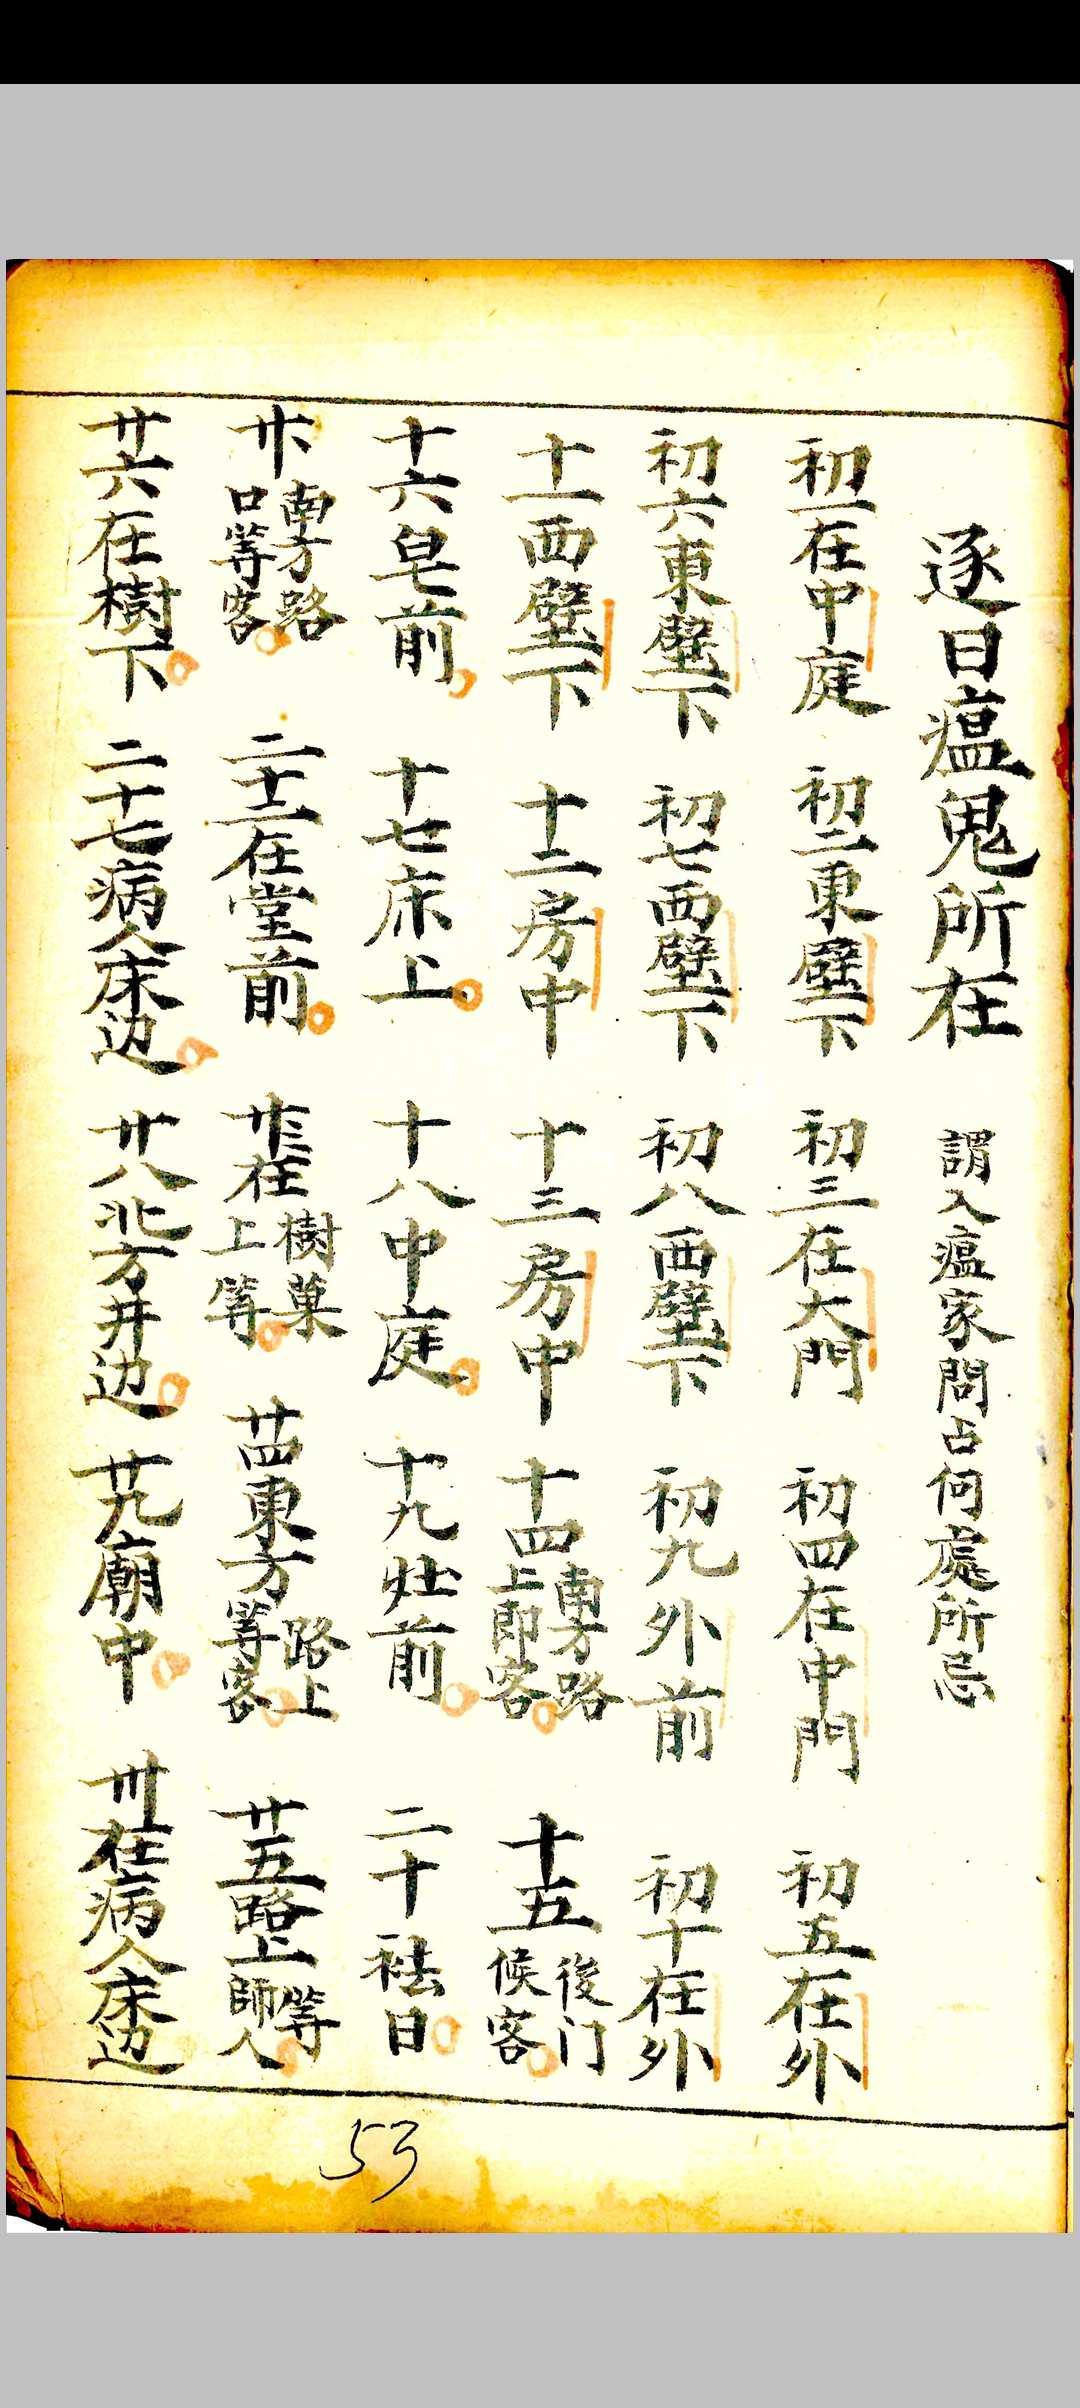 逐日瘟鬼所在 謂入瘟家問占何處所忌
初一在中庭 初二東壁下 初三在大門 初四在中門 初五在外
初六東壁下 初七西壁下 初八西壁下 初九外前 初十在外
十一西壁下 十二房中 十三房中 十四南方路上即客 十五後门候客
十六皂前 十七床上 十八中庭 十九灶前 二十祛日
南方路口等客 二十二在堂前 廿三在樹菓上等 廿四東方路上等客 廿五路上等師人
廿六在樹下 二十七病人床边 廿八北方井边 廿九廟中 卅在病人床边
53